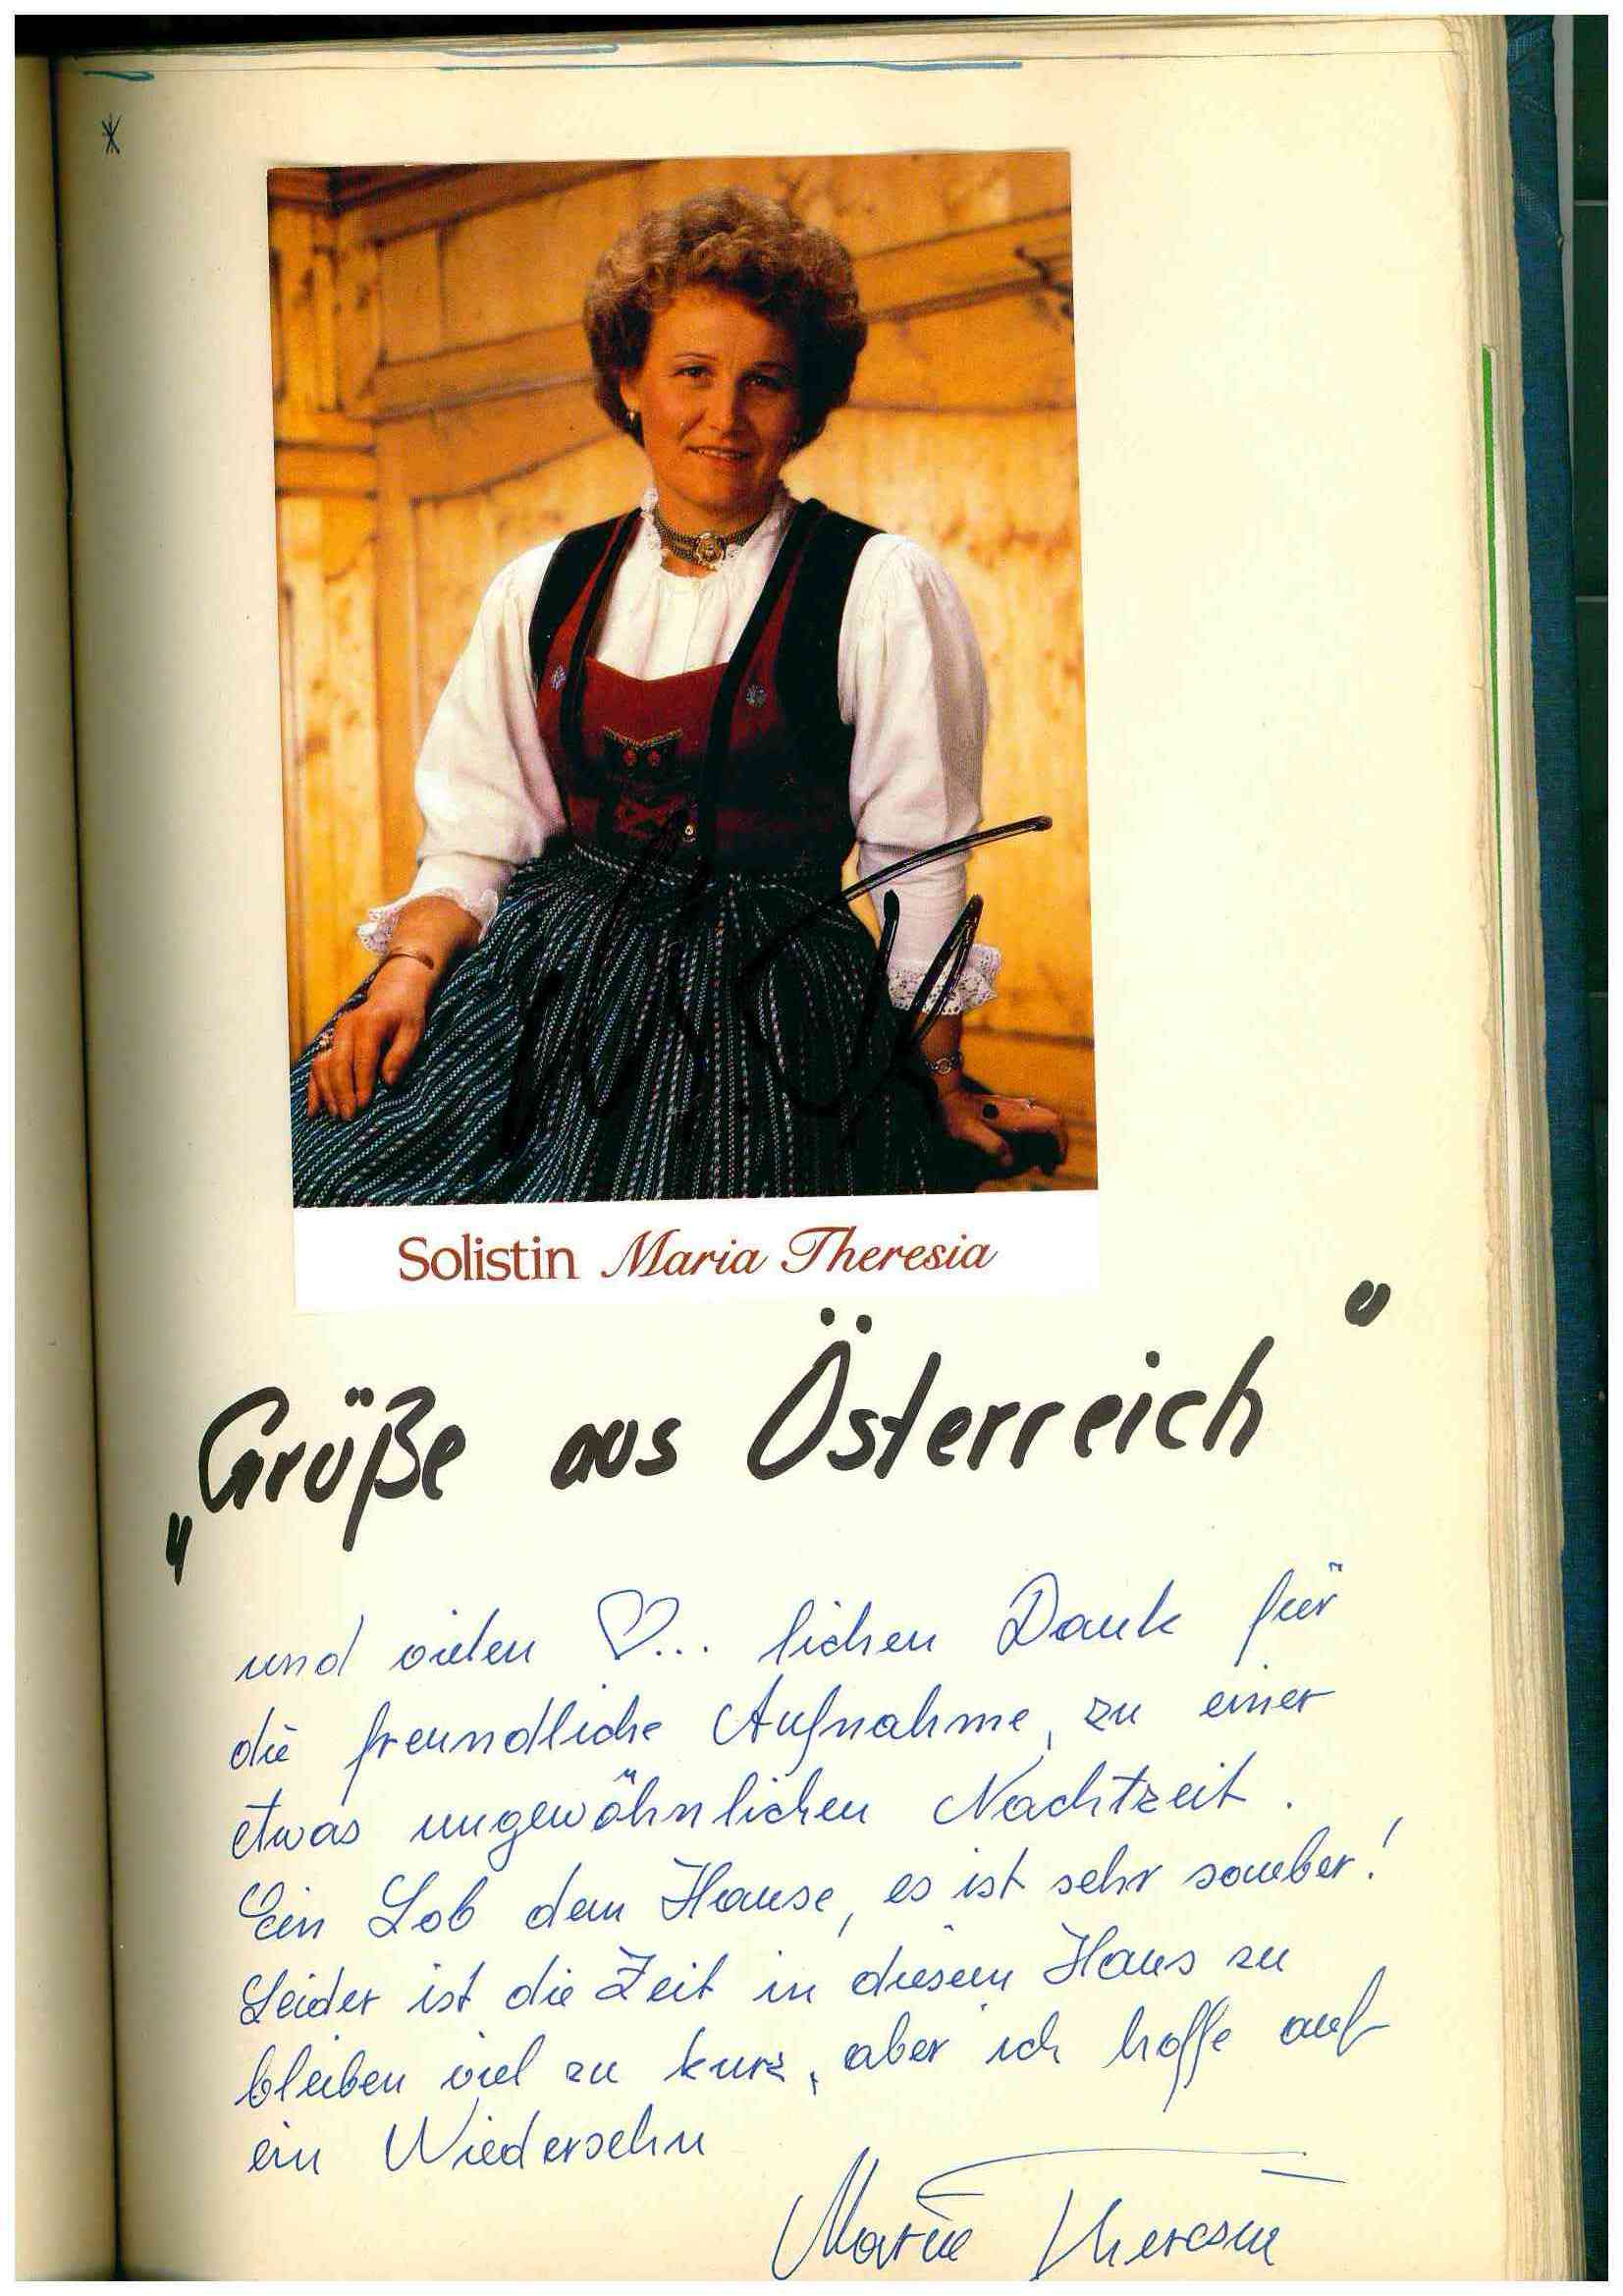 Solistin Maria Theresia
„Grüße aus Österreich"
und vielen ♡... lichen Dank für
die freundliche Aufnahme, zu einer
etwas ungewöhnlichen Nachtzeit.
Ein Lob dem Hause, es ist sehr sauber!
Leider ist die Zeit in diesem Haus zu
bleiben viel zu kurz, aber ich hoffe auf
ein Wiedersehn
Maria Theresia